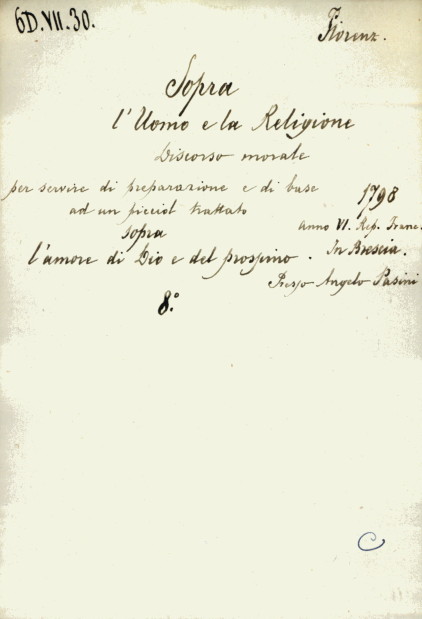 6D.VII.30.
Florenz.
Sopra
l'Uomo e la Religione
Discorso morale
per servire di preparazione e di base
ad un picciol trattato
sopra
l'amore di Dio e del prossimo.
1798
anno VI. Rep. Franc.
In Brescia.
Presso Angelo Pasini
8.º
C